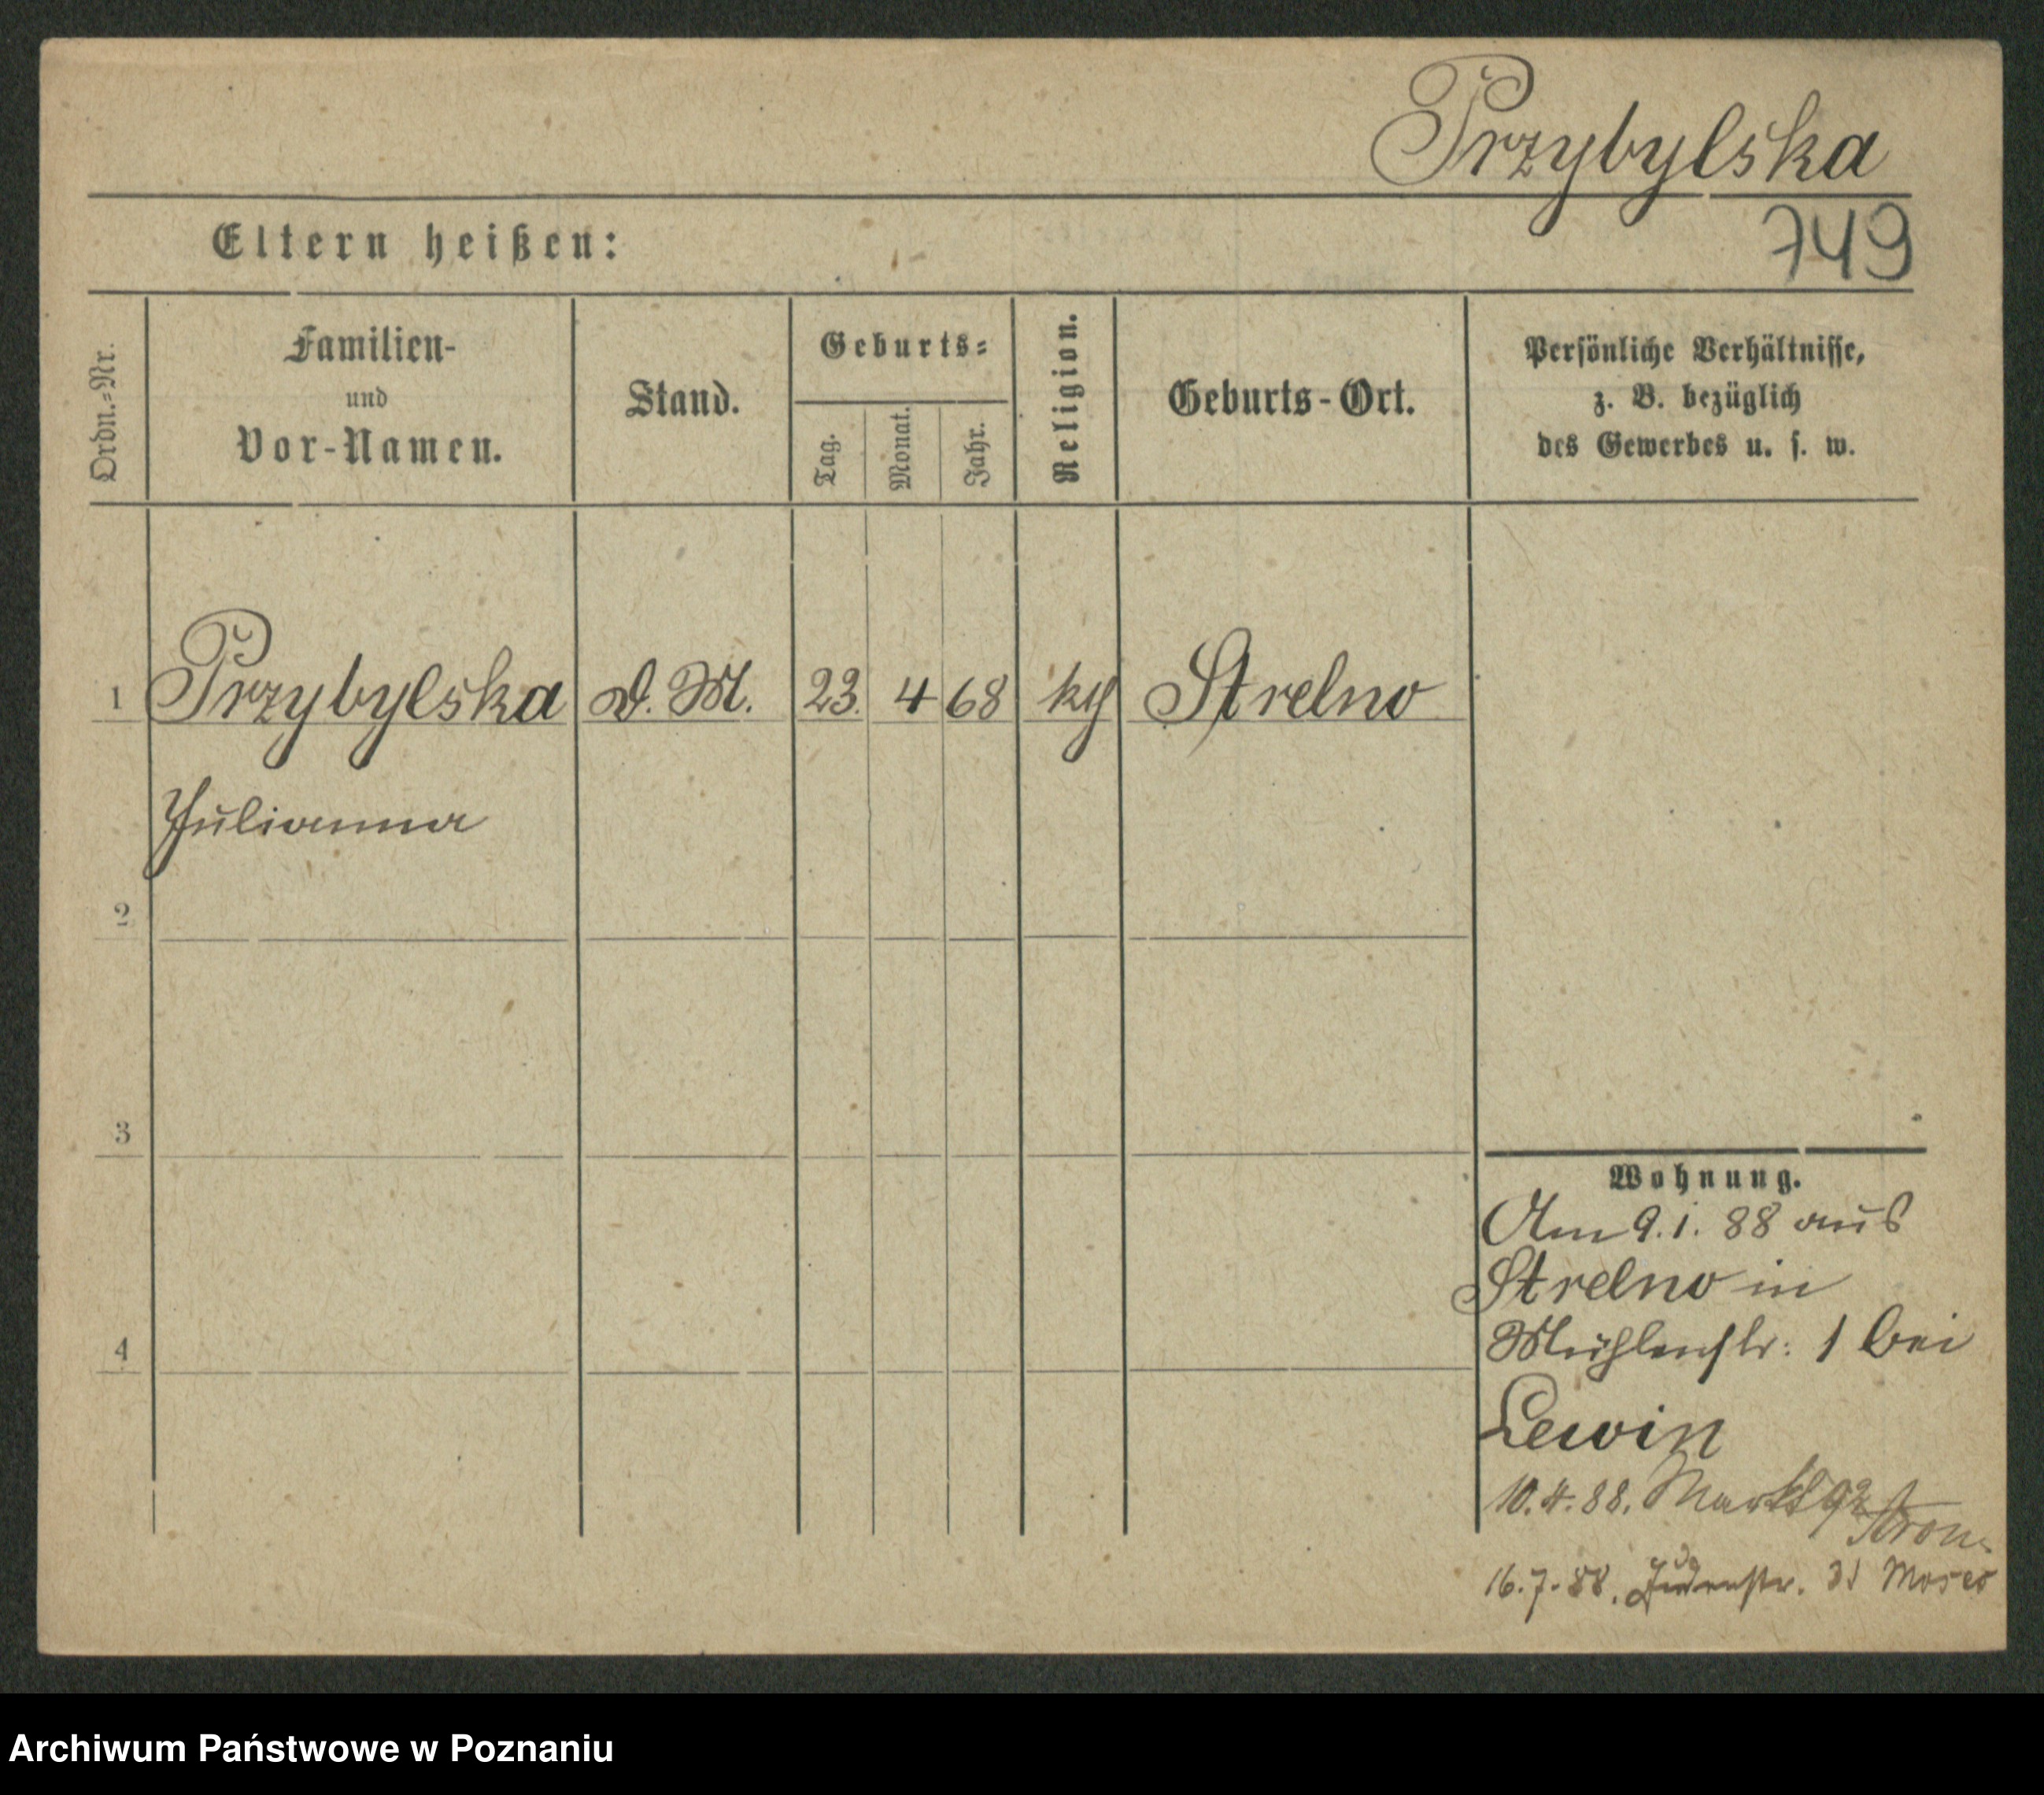 Przybylska
Eltern heißen:
749
Ordn.=Nr.
Familien-
und
Vor-Namen.
Stand.
Geburts=
Tag.
Monat.
Jahr.
Religion.
Geburts-Ort.
Persönliche Verhältnisse,
z. B. bezüglich
des Gewerbes u. s. w.
1 Przybylska D. M. 23. 4 68 kth Strelno
Julianna
2
3
4
Wohnung.
Am 9.1.88 aus
Strelno in
Mühlenstr: 1 bei
Lewin
10.4.88. Markt 92
16.7.88. Judenstr. 31 Moses
Archiwum Państwowe w Poznaniu